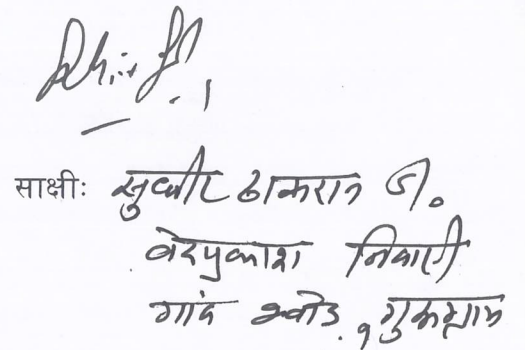 साक्षीः सुधीर ठाकरान S/o
वेदप्रकाश निवासी
गांव , गुरुग्राम